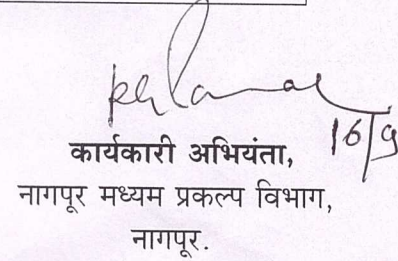 16/9
कार्यकारी अभियंता,
नागपूर मध्यम प्रकल्प विभाग,
नागपूर.